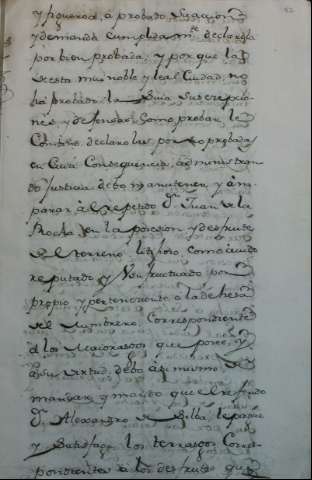 y figueroa, á probado su accion
y demanda cumplidamte. declarola
por bien probada; y por que la
de esta mui noble y leal Ciudad, no
ha probado la suia sus excepcio
nes, y defensas como probar le
Combino, declaro las por no probadas
en cuia consequencia, administran
do Justicia debo manutener y am-
parar á el referido Dn. Juan de la
Rocha en la posesion y desfrute
de el terreno litijioso, como sido
reputado y usufructuado por
propio y perteneciente a la dehesa
de el sombrero, Correspondiente
á los Maiorazgos que posee, y
en su virtud, debo ási mismo de
mandar, y mando que el referido
Dn. Alexandro de Silba, le pague
y Satisfaga los terrazgos Corres-
pondientes á los desfrutes que